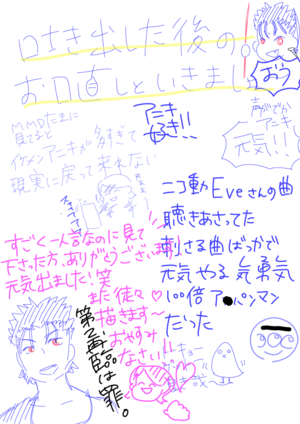 吐き出した後の。
お口直しといきましょ
おう
アニキ
好き!!
声がでか
アニキ
元気!!
MMDたまに
見てると
イケメンアニキが多すぎて
現実に戻って来れない
ニコ動Eveさんの曲
聴きあさってた
刺さる曲ばっかで
元気やる気勇気
100倍ア●パンマン
だった
すごく一人言なのに見て
下さった方、ありがとうございます!!
元気出ました!笑
また徐々♡
描きます〜
おやすみ
なさい!!
第3再臨は罪。